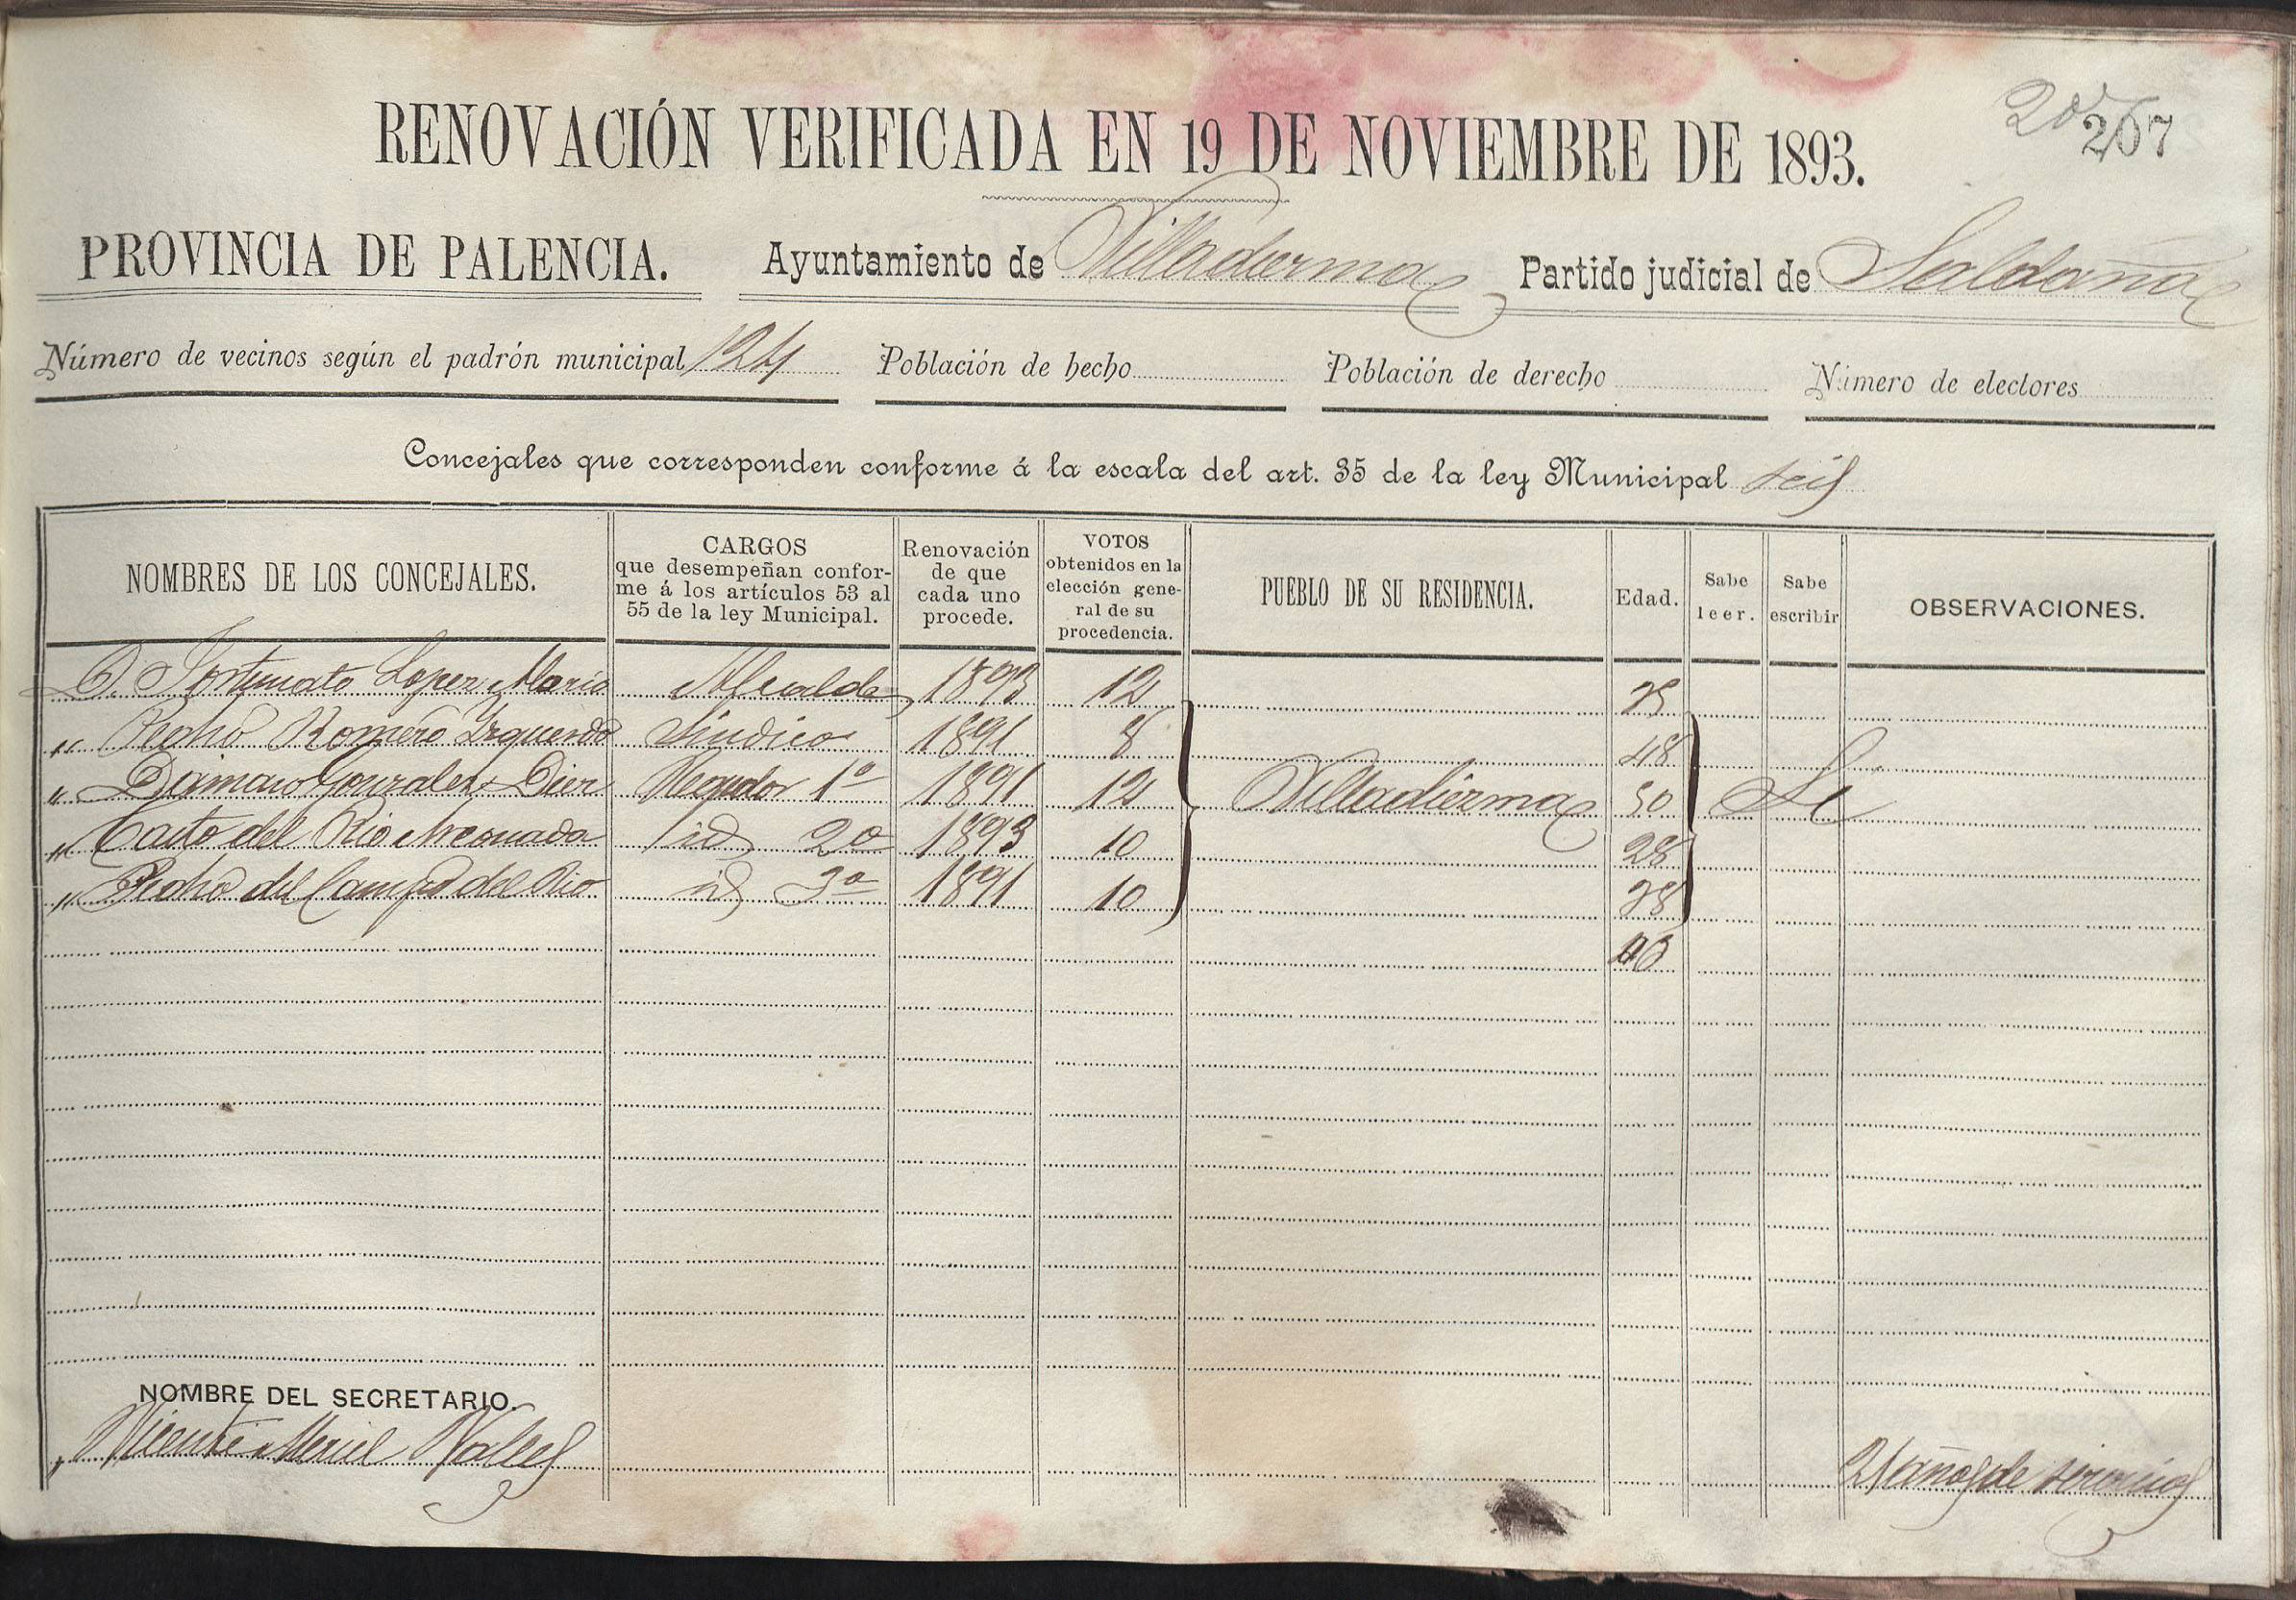 207
RENOVACIÓN VERIFICADA EN 19 DE NOVIEMBRE DE 1893.
PROVINCIA DE PALENCIA. Ayuntamiento de Villadierma Partido judicial de Saldaña
Número de vecinos según el padrón municipal 124 Población de hecho Población de derecho Número de electores
Concejales que corresponden conforme á la escala del art. 35 de la ley Municipal seis
NOMBRES DE LOS CONCEJALES.
CARGOS
que desempeñan confor-
me á los artículos 53 al
55 de la ley Municipal.
Renovación
de que
cada uno
procede.
VOTOS
obtenidos en la
elección gene-
ral de su
procedencia.
PUEBLO DE SU RESIDENCIA.
Edad.
Sabe
leer.
Sabe
escribir
OBSERVACIONES.
D. Fortunato Lopez Alcalde 1893 12
" Pedro Romero Izquierdo Síndico 1891 8 48
" Gonzalez Diez Regidor 1º 1891 12 Villadierma 50 Si
" Casto del Rio id 2º 1893 10 28
" Pedro del Campo del Rio id 3º 1891 10 38
NOMBRE DEL SECRETARIO.
Vicente Meriel Valles 21 años de servicios